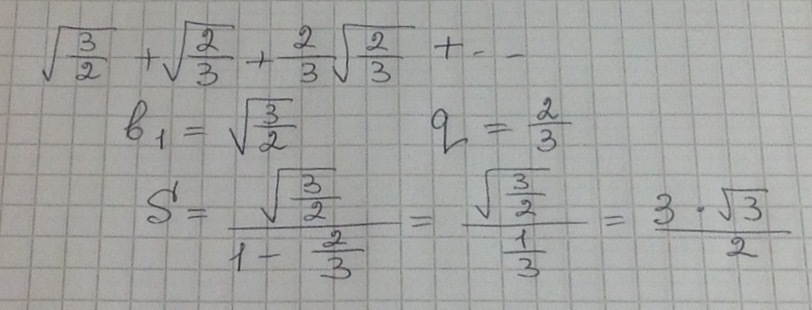 √(3/2) + √(2/3) + 2/3 √(2/3) + - -
b₁ = √(3/2)    q = 2/3
S = √(3/2) / (1 - 2/3) = √(3/2) / (1/3) = (3 · √3) / 2